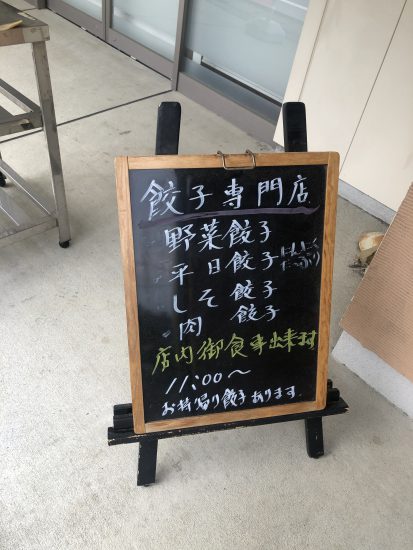 餃子専門店
野菜餃子
平日餃子 にんにくたっぷり
しそ餃子
肉 餃子
店内御食事出来ます
11:00～
お持帰り餃子あります